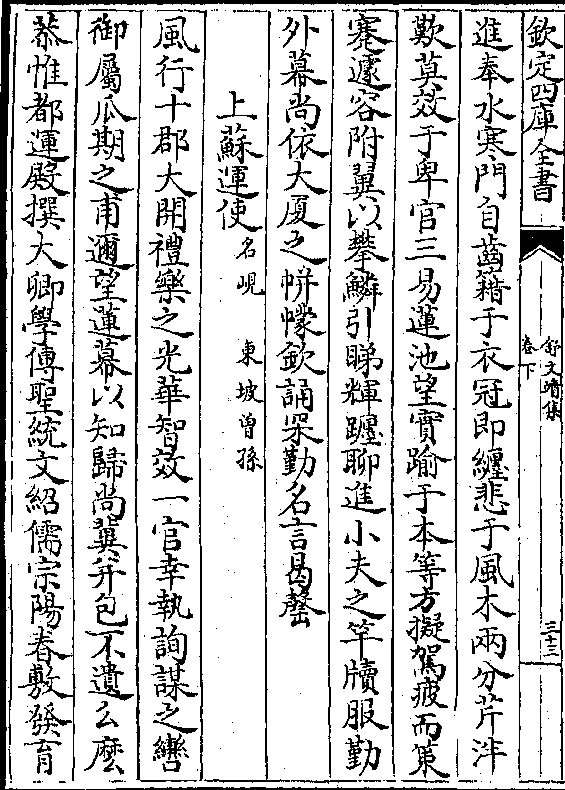 欽定四庫全書
舒文靖集
卷下
三十三
進奉水寒門自齒籍于衣冠即纏悲于風木兩分芹泮
歎莫效于卑官三易蓮池望實踰于本等方擬駕疲而策
蹇遽容附翼以攀鱗引睇輝躔聊進小夫之竿牘服勤
外幕尚依大厦之帡幪欽誦罙勤名言曷罄
上蘇運使名峴 東坡曾孫
風行十郡大開禮樂之光華智效一官幸執詢謀之轡
御屬瓜期之甫邇望蓮幕以知歸尚冀并包不遺么麽
恭惟都運殿撰大卿學傳聖統文紹儒宗陽春敷發育